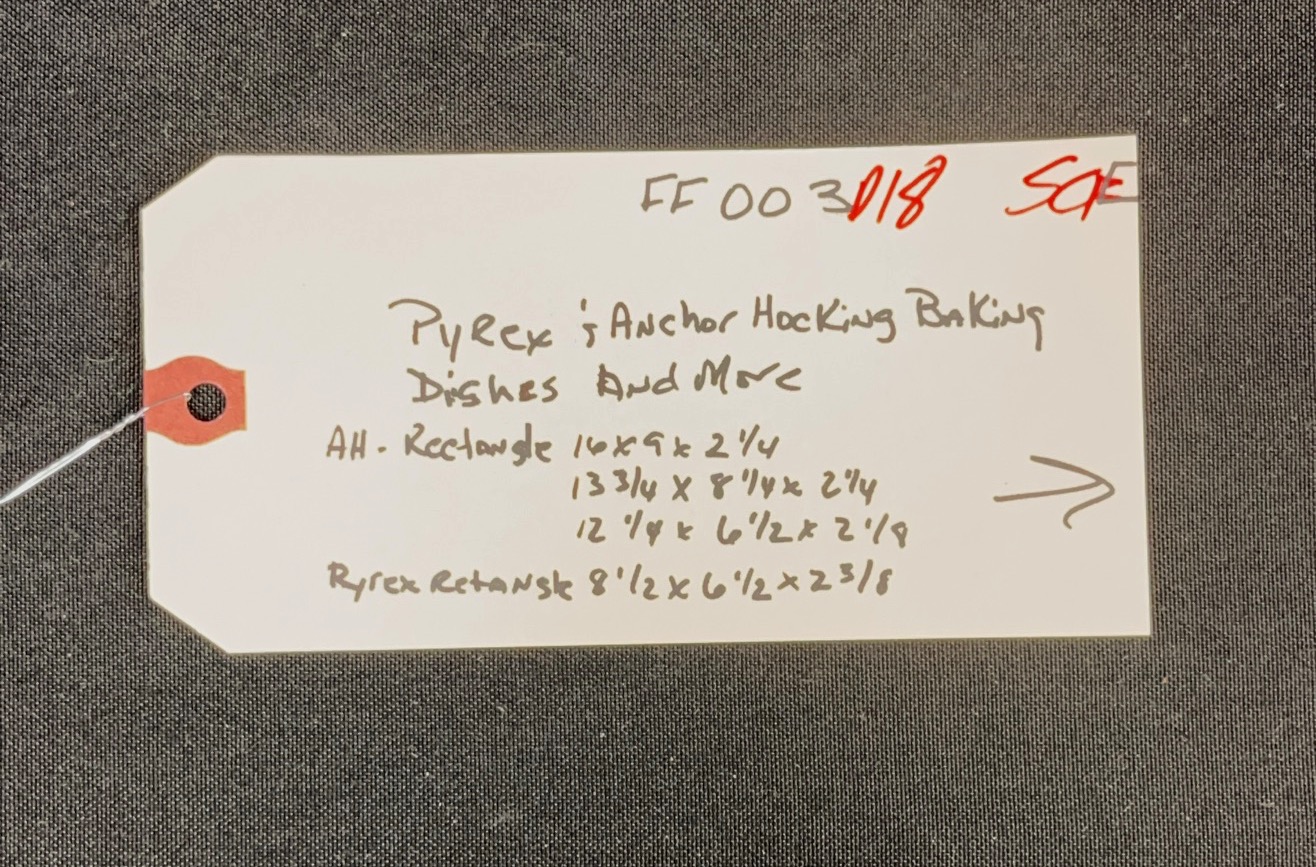 FF 003 D18 SCE
Pyrex & Anchor Hocking Baking
Dishes And More
AH. Rectangle 16 x 9 x 2 1/4
13 3/4 x 8 1/4 x 2 1/4
12 1/4 x 6 1/2 x 2 1/8
Pyrex Retangle 8 1/2 x 6 1/2 x 2 3/8